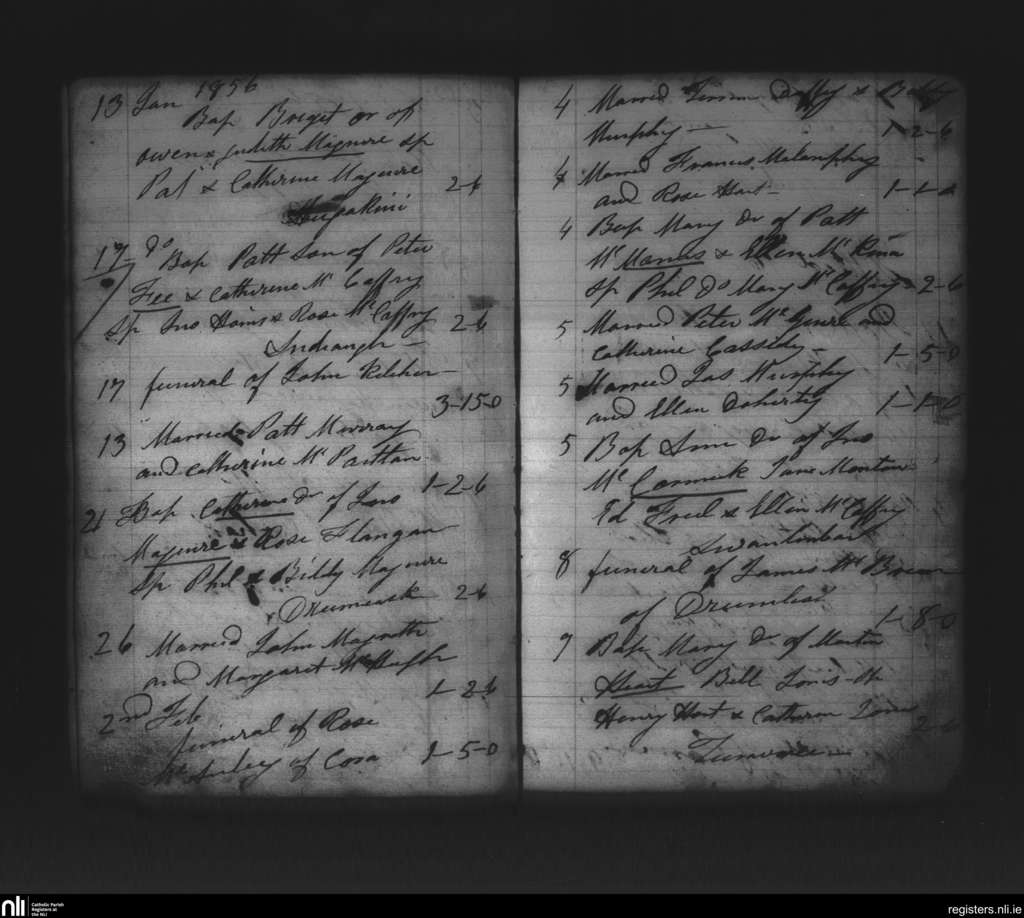 13 Jan 1856
Bap Briget Dr of
Owen & Judith Maguire sp
Pat & Catherine Maguire
2-6
17 do Bap Patt Son of Peter
Fee & Catherine Mc Caffry
Sp Jno & Rose McCaffry 2-6
17 funeral of John Kelcher
3-15-0
13 Married Patt Murray
and Catherine Mc Parttan
1-2-6
21 Bap Catherine Dr of Jno
Maguire & Rose Flangan
Sp Phil & Biddy Maguire
2-6
26 Married John Magrath
and Margaret McHugh
1-2-6
2nd Feb
funeral of Rose
of Cora 1-5-0
4 Married Duffy & Betty
Murphy 1-2-6
4 Married Francis Melanphy
and Rose Hart
4 Bap Mary Dr of Patt
Mc Manus & Ellen Mc
Sp Phil Do Mary McCaffry 2-6
5 Married Peter McGuire and
Catherine Cassidy 1-5-0
5 Married Jas Murphy
and Ellen Doherty 1-1-0
5 Bap Dr of Jno
Mc Cormick Jane
& Ellen McCaffry
Swanlinbar
8 funeral of James Mc
of 1-8-0
9 Bap Mary Dr of Martin
Heart Bell
Henry Hart & Catherin
2-6
registers.nli.ie
nli
Catholic Parish
Registers at
the NLI